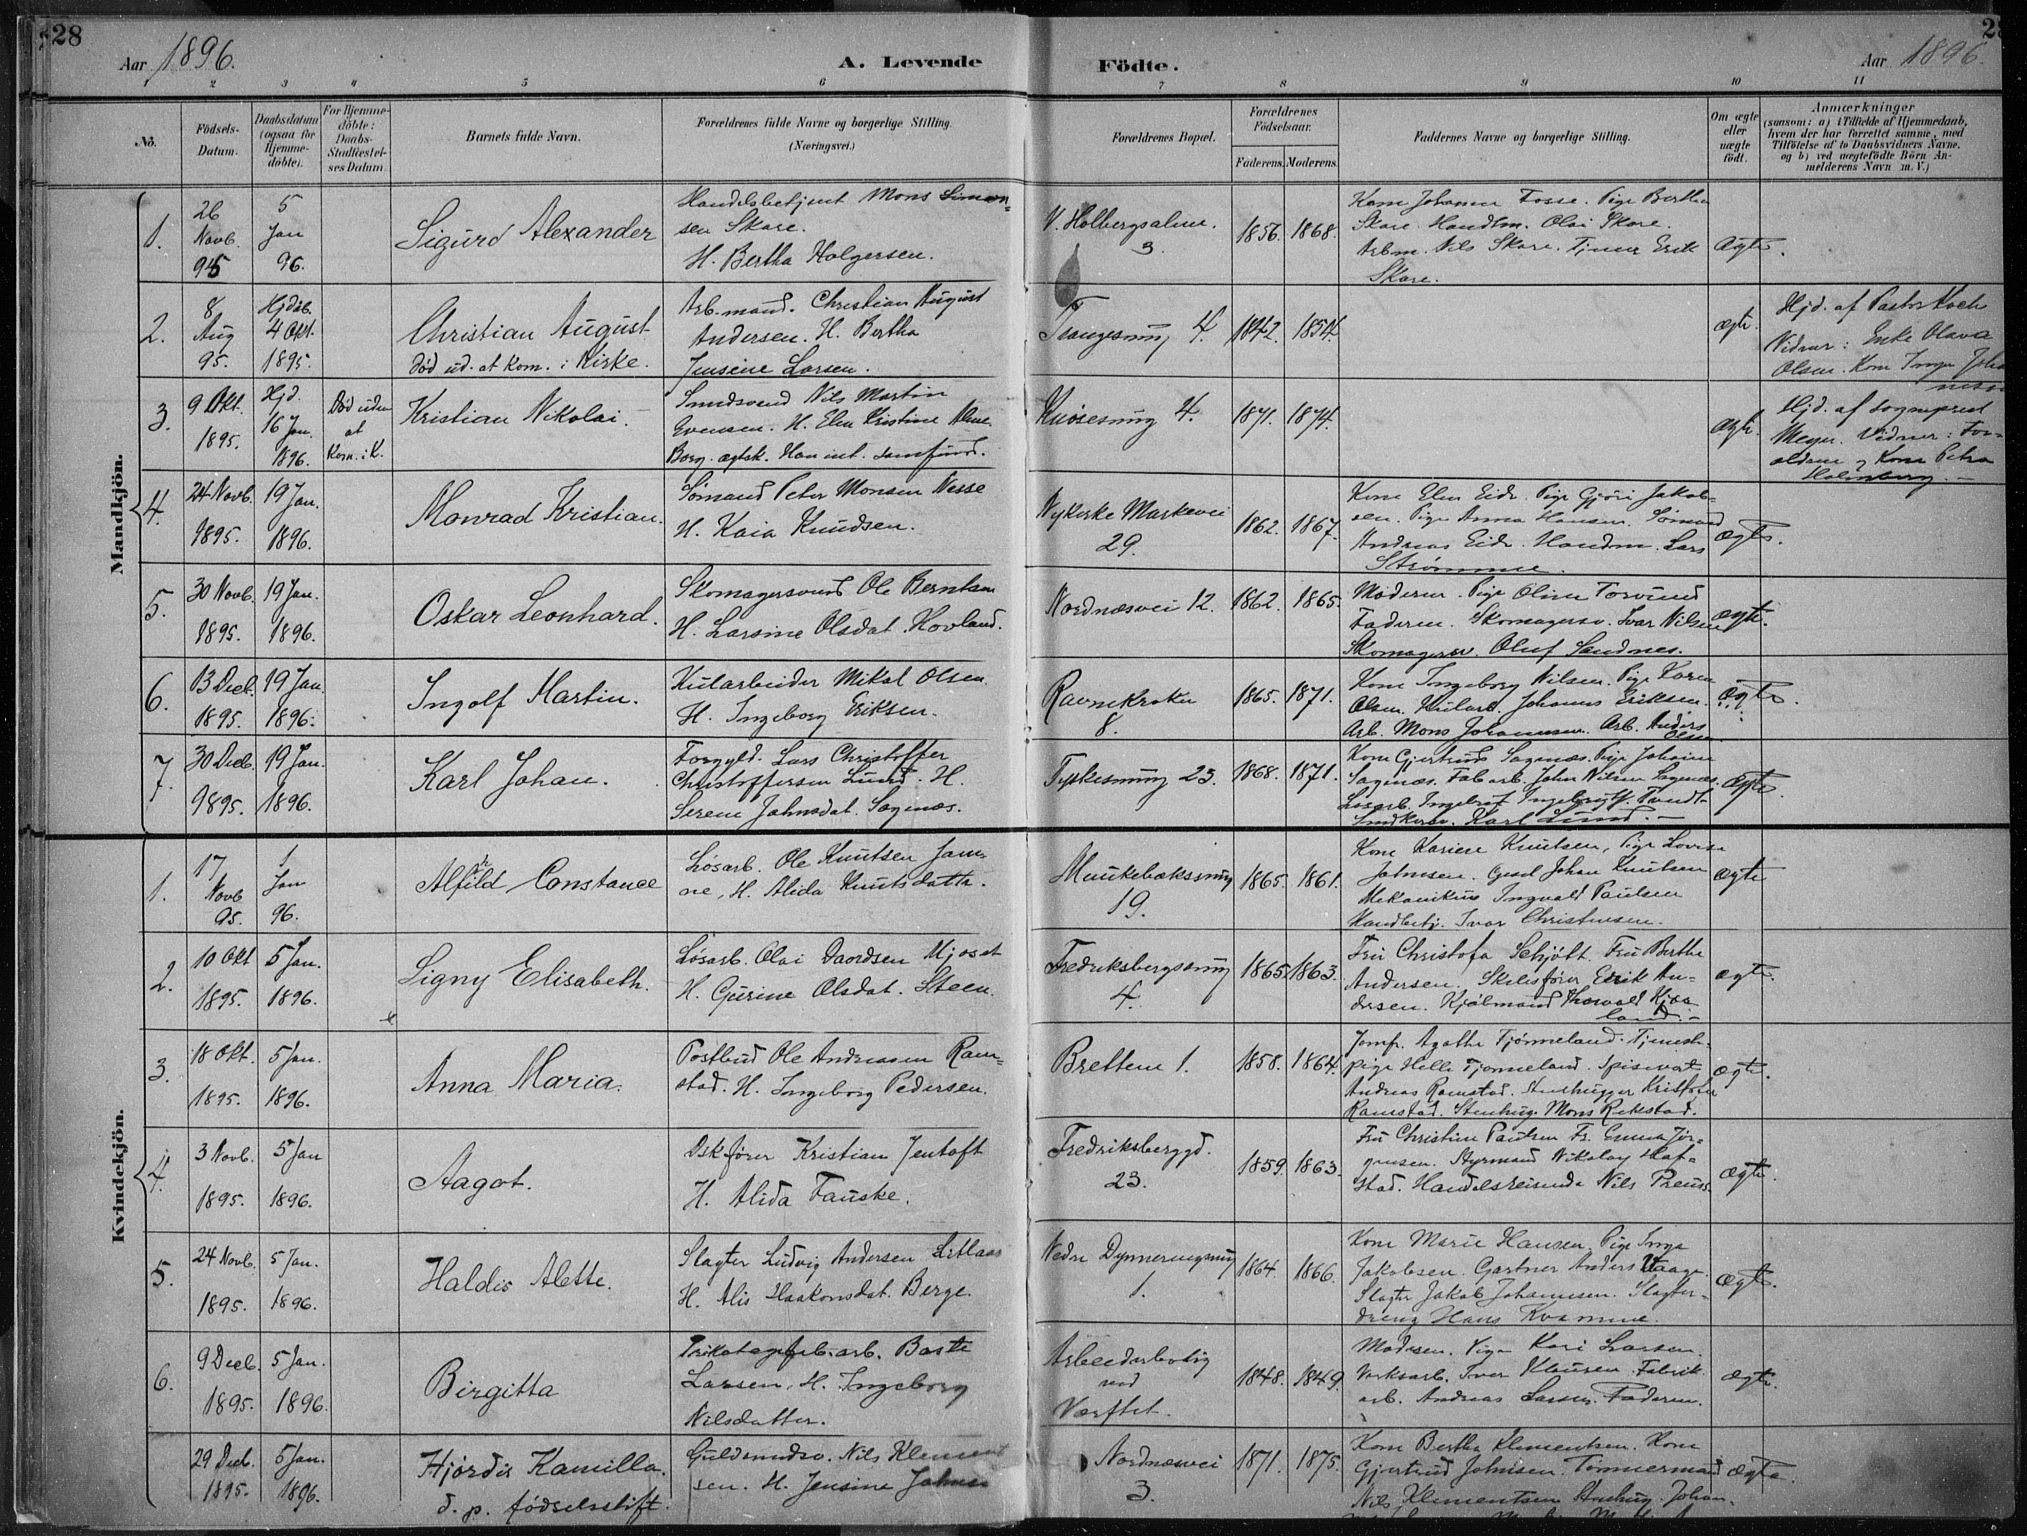 28
Aar 1896.
A. Levende
Födte.
Aar 1896.
28
1 2 3 4 5 6 7 8 9 10 11
No.
Födsels-
Datum.
Daabsdatum
(ogsaa for
Hjemme-
döbte).
For Hjemme-
döbte:
Daabs-
Stadfæstel-
ses Datum
Barnets fulde Navn.
Forældrenes fulde Navne og borgerlige Stilling.
(Næringsvei.)
Forældrenes Bopæl.
Forældrenes
Födselsaar.
Faderens.
Moderens.
Faddernes Navne og borgerlige Stilling.
Om ægte
eller
uægte
födt.
Anmærkninger
(saasom: a) i Tilfælde af Hjemmedaab,
hvem der har forrettet samme, med
Tilföielse af to Daabsvidners Navne,
og b) ved uægtefödte Börn An-
melderens Navn m. V.)
Mandkjön.
1.
26
Novb.
95
5
Jan
96.
Sigurd Alexander
Handelsbetjent Mons Simon-
sen Skare.
H. Bertha Holgersen.
V. Holbergsalm.
3.
1856. 1868.
Kone Johanna Fosse. Pige Bertha
Skare. Handlm. Olai Skare.
Arbm. Nils Skare. Tjener Erik
Skare.
ægte.
2.
8
Aug
95.
Hjdøb.
4 Okt.
1895.
Christian August
død ud. at kom. i Kirke.
Arb.mand. Christian August
Andersen. H. Bertha
Jensine Larsen.
4.
1842. 1854.
ægte.
Hjd. af Pastor Koch
Vidner: Enke Olava
Olsen. Kone Inger
3.
9 Okt.
1895.
Hjd.
16 Jan.
1896.
Død uden
at
Kom. i K.
Kristian Nikolai.
Smedsvend Nils Martin
Evensen. H. Elen Kristine
Borg. ægtsk.
Knøsesmug 4.
1871. 1874.
ægte.
Hjd. af Sogneprest
Meyer. Vidner: For-
ældrene og Kone Petra
Holmberg.
4.
24 Novb.
1895.
19 Jan.
1896.
Monrad Kristian.
Sømand Peter Monsen Nesse
H. Kaia Knudsen.
Nykirke Markevei
29.
1862. 1867.
Kone Elen Eide. Pige Gjøri Jakob-
sen. Pige Anna Hansen. Sømand
Andreas Eide. Handm. Lars
Strømme.
ægte.
5.
30 Novb.
1895.
19 Jan.
1896.
Oskar Leonhard.
Skomagersvend Ole Berntsen
H. Larsine Olsdat. Hovland.
Nordnæsvei 12.
1862. 1865.
Moderen. Pige Olina Torvund
Faderen. Skomagersv. Ivar Nilsen
Skomagersv. Oluf Sandnes.
ægte.
6.
13 Decb.
1895.
19 Jan.
1896.
Ingolf Martin.
Kularbeider Mikal Olsen.
H. Ingeborg Eriksen.
Ravnekroken
8.
1865. 1871.
Kone Ingeborg Nilsen. Pige Karen
Olsen. Kularb. Johannes Eriksen.
Arb. Mons Johannesen. Arb. Anders
Olsen
ægte.
7.
30 Decb.
1895.
19 Jan.
1896.
Karl Johan.
Forgyld. Lars Christoffer
Christoffersen Lund. H.
Serene Johnsdat. Sagenæs.
Tyskesmug 23.
1868. 1871.
Kone Gjertrud Sagenæs. Pige Johanne
Sagenæs. Fab.arb. John Nilsen Sagenæs.
Karl Lund.
ægte.
Kvindekjön.
1.
17
Novb
95.
1
Jan
96.
Alfhild Constance
Løsarb. Ole Knutsen Jam-
ne, H. Alida Knutsdatter.
Munkebækssmug
19.
1865. 1861.
Kone Karine Knutsen, Pige Lovise
Johnsen. Gesel Johan Knutsen
Mekanikus Ingvald Paulsen
Handbetj. Ivar Christensen.
ægte
2.
10 Okt
1895.
5 Jan.
1896.
Signy Elisabeth.
Løsarb. Olai Daordsen Mjøset
H. Gurine Olsdat. Steen.
Fredriksbergssmug
4.
1865. 1863.
Fru Christofa Schjøtt. Fru Berthe
Andersen. Skibsfører Erik An-
dersen. Kjølmand Thorvald
ægte.
3.
18 Okt.
1895.
5 Jan.
1896.
Anna Maria.
Postbud Ole Andreassen Ram-
stad. H. Ingeborg Pedersen.
Bretten 1.
1858. 1864.
Jomfr. Agathe Tjønneland. Tjeneste-
pige Helle Tjønneland. Spisevert
Andreas Ramstad. Stenhugger Kristofer
Ramstad. Stenhug. Mons Rekstad.
ægte.
4.
3 Novb.
1895.
5 Jan
1896.
Aagot.
Dskfører Kristian Jentoft
H. Alida Fauske.
Fredriksberggd.
23.
1859. 1863.
Fru Christine Paulsen Fr. Emma Jør-
gensen. Styrmand Nikolay Haf-
stad. Handelsreisende Nils Preuss.
ægte.
5.
24 Novb.
1895.
5 Jan.
1896.
Haldis Alette.
Slagter Ludvig Andersen Litlaas
H. Alis Haakonsdat. Berge.
Nedre Dynneringsmug
1.
1864. 1866.
Kone Marie Hansen. Pige Inga
Jakobsen. Gartner Anders Vaage.
Slagter Jakob Johannesen. Slagter-
dreng Hans Kvamme.
ægte.
6.
9 Decb.
1895.
5 Jan.
1896.
Birgitta
Trikotagefab.arb. Baste
Larsen. H. Ingeborg
Nilsdatter.
Arbeiderbolig
ved
Værftet.
1848. 1849.
Moderen. Pige Kari Larsen.
Verksarb. Iver Klausen. Fabrik
arb. Andreas Larsen. Faderen.
ægte.
29 Decb.
1895.
5 Jan.
1896.
Hjørdis Kamilla.
d. p. fødselsstift.
Guldsmedsv. Nils Klement
sen. H. Jensine Johnsen
Nordnæsvei
3.
1871. 1875.
Kone Bertha Klementsen. Kone
Gjertrud Johnsen. Tømmermand
Nils Klementsen Stenhug. Johan.
ægte.